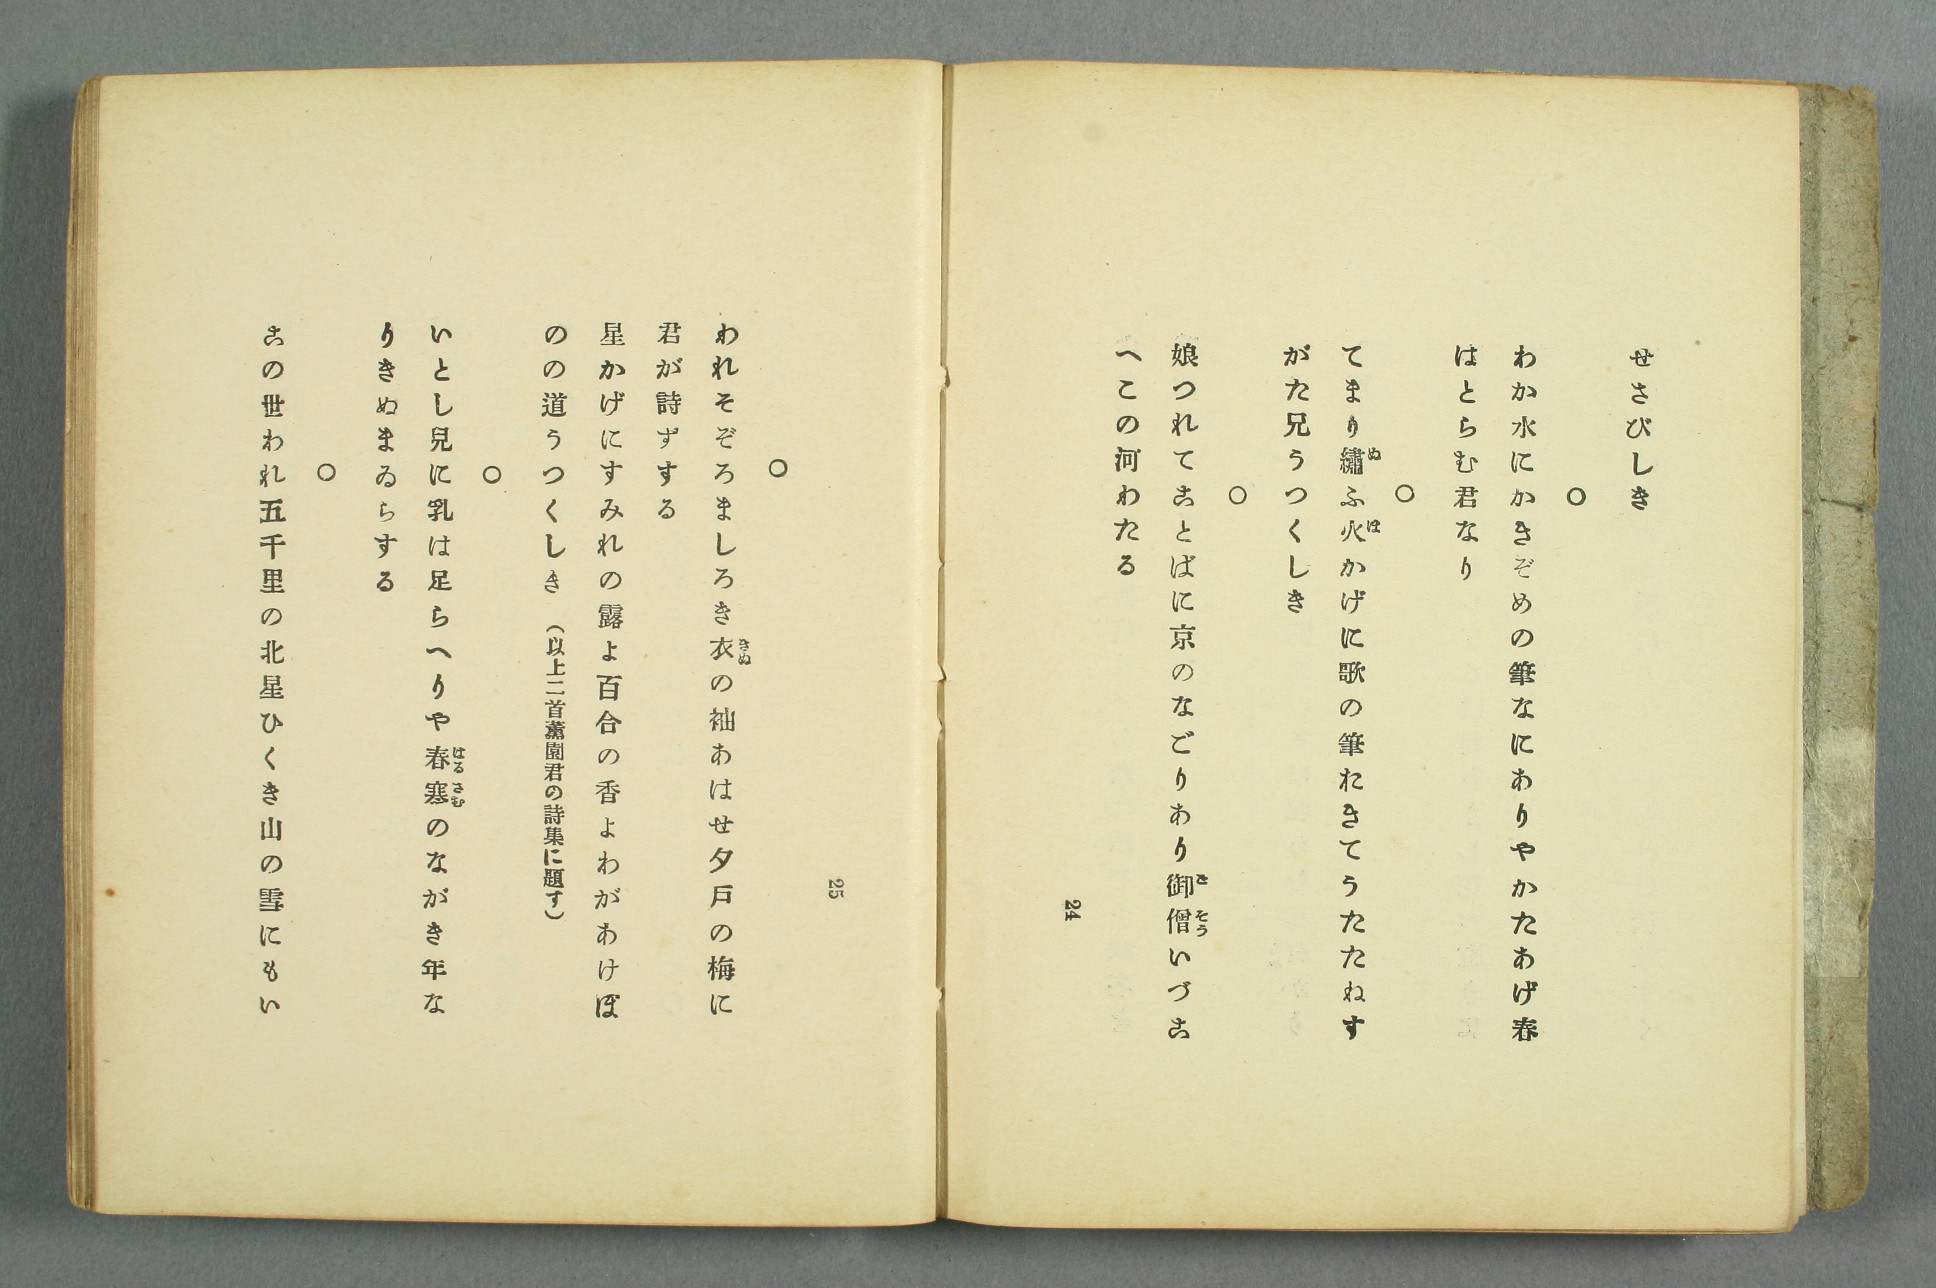 せさびしき
○
わか水にかきぞめの筆なにありやかたあげ春
はとらむ君なり
○
てまり繡ふ火かげに歌の筆おきてうたたねす
がた兄うつくしき
○
娘つれてことばに京のなごりあり御僧いづこ
へこの河わたる
24
25
○
われそぞろましろき衣の袖あはせ夕戸の梅に
君が詩ずする
星かげにすみれの露よ百合の香よわがあけぼ
のの道うつくしき（以上二首薰園君の詩集に題す）
○
いとし兒に乳は足らへりや春寒のながき年な
りきぬまゐらする
○
この世われ五千里の北星ひくき山の雪にもい